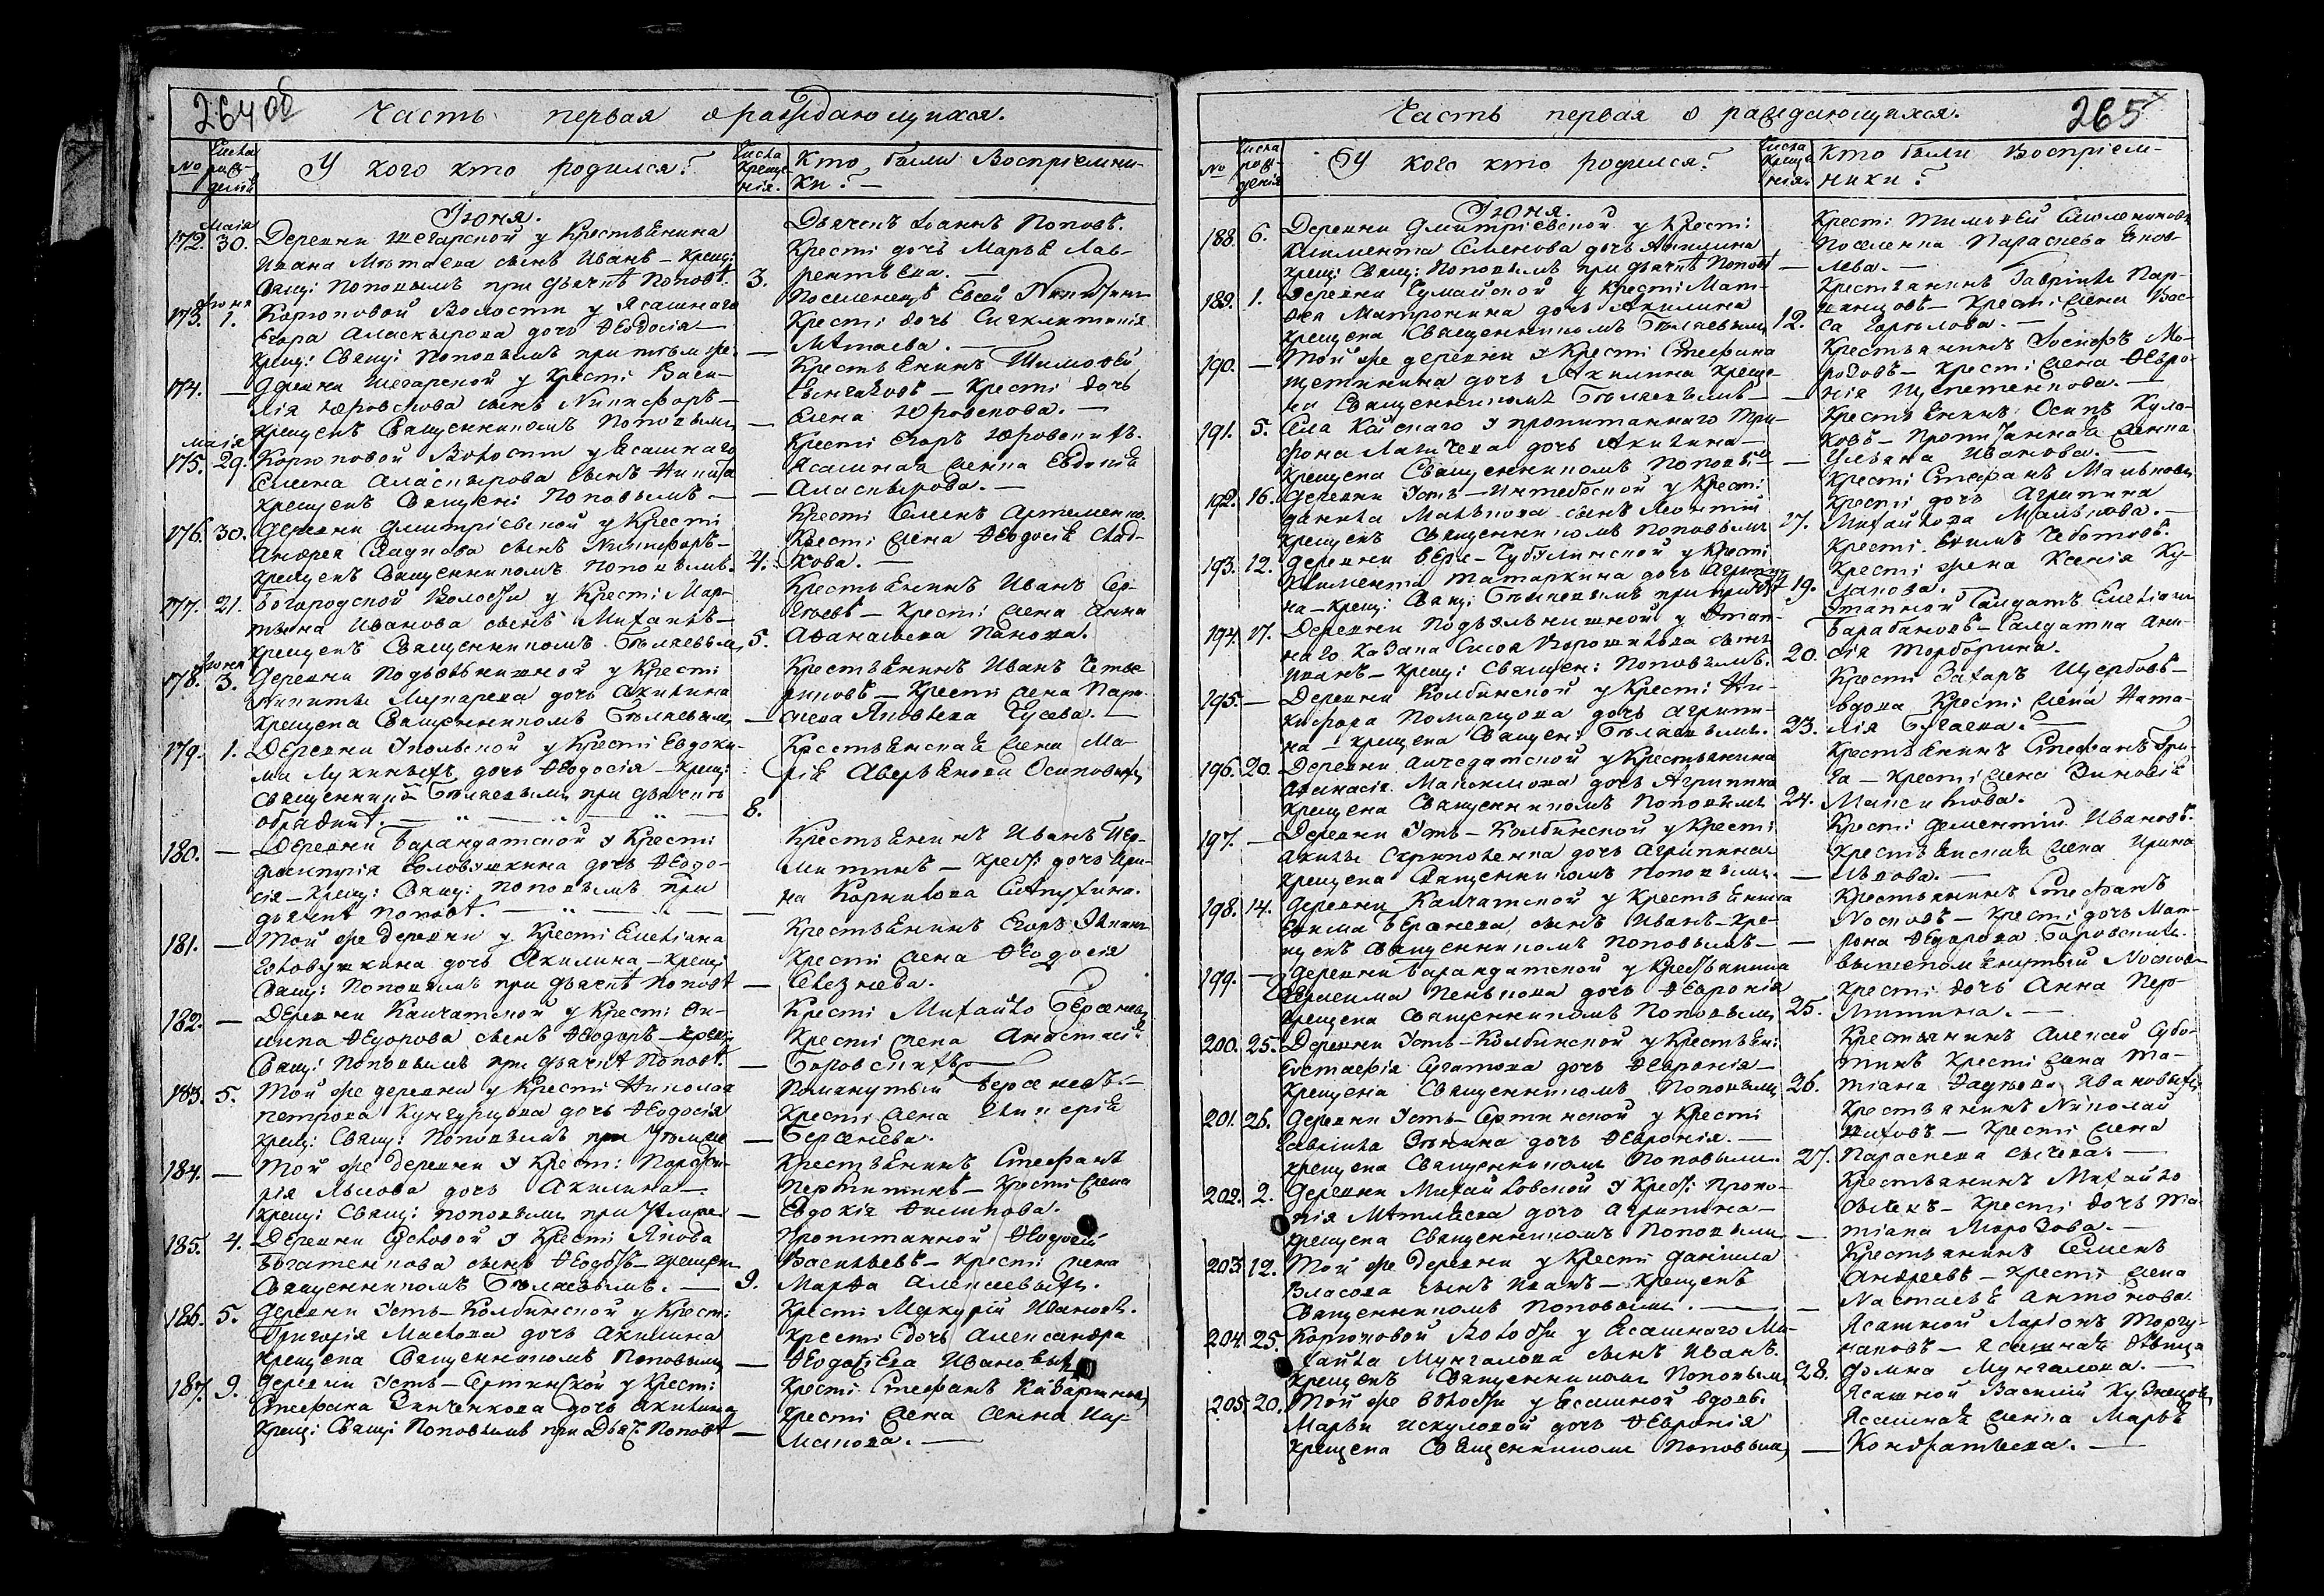 264 об
Часть первая о раждающихся.
№
Числа рож- денія
У кого кто родился?
Числа Креще- нія.
Кто были Воспріемни-
ки? —
Іюня.
172. Маія 30. Деревни Шегарской у Крестьянина
Ивана сынъ Иванъ — Крещ:
Свящ: Поповымъ при дьячкѣ Поповѣ. 3.
Дьячекъ Іоаннъ Поповъ.
Кресті дочь Марья Лав-
рентьева. —
173. Іюня 1. Корюковой Волости у Ясашнаго
Егора Аласкырова дочь Ѳеодосія —
Крещ: Свящ: Поповымъ при томъ же. —
Поселенецъ Евсей
Кресті дочь Сигклитикія
174. — Деревни Шегарской у Кресті Васи-
лія Юровскова сынъ Никифоръ —
Крещенъ Священникомъ Поповымъ —
Крестьянинъ Тимоѳей
— Кресті дочь
Елена Юровскова. —
175. Маія 29. Корюковой Волости у Ясашнаго
Семена Аласкырова сынъ Никита
Крещенъ Священ: Поповымъ — —
Кресті Егоръ Юровскихъ.
Ясашная женка Евдокія
Аласкырова. —
176. 30. Деревни Дмитріевской у Кресті
Андрея сынъ Никифоръ —
Крещенъ Священникомъ Поповымъ. 4.
Кресті Семенъ Артеменко.
Кресті жена Ѳеодосія Слад-
кова. —
177. 21. Богородской Волости у Кресті Мар-
тына Иванова сынъ Михаилъ —
Крещенъ Священникомъ Бѣляевымъ 5.
Крестьянинъ Иванъ Сер-
гѣевъ — Кресті жена Анна
Аѳанасьева Панова.
178. Іюня 3. Деревни Подъельнишной у Кресті
Никиты дочь Акилина
Крещена Священникомъ Бѣляевымъ —
Крестьянинъ Иванъ
— Кресті жена Парас-
кева Яковлева Гусева. —
179. 1. Деревни у Кресті Евдоки-
ма Лукиныхъ дочь Ѳеодосія — Крещ:
Священник Бѣляевымъ при дьячкѣ
8.
Крестьянская жена Ма-
рія Аверьянова Осиповыхъ
180. — Деревни Барандатской у Кресті
Димитрія Головушкина дочь Ѳеодо-
сія — Крещ: Свящ: Поповымъ при
дьячкѣ Поповѣ. — —
Крестьянинъ Иванъ Пер-
митинъ — Крест: дочь Ири-
на Корнилова
181. — Той же деревни у Кресті Емеліана
Головушкина дочь Акилина — Крещ:
Свящ: Поповымъ при дьячкѣ Поповѣ —
Крестьянинъ Егоръ
Кресті жена Ѳеодосія
Селезнева.
182. — Деревни Камчатской у Кресті Фи-
липа Ѳедорова сынъ Ѳеодоръ — Крещ:
Свящ: Поповымъ при дьячкѣ Поповѣ. —
Кресті Михайло Берсеневъ
Кресті жена Анастасія
Боровскихъ —
183. 5. Той же деревни у Кресті Николая
Петрова Кунгурцова дочь Ѳеодосія
Крещ: Свящ: Поповымъ при томъ же —
Помянутый Берсеневъ —
Кресті жена Гликерія
Берсенева.
184. — Той же деревни у Кресті: Порфи-
рія Лыкова дочь Акилина —
Крещ: Свящ: Поповымъ при томъ же —
Крестьянинъ Стефанъ
Пермитинъ — Кресті жена
Евдокія Филипова.
185. 4. Деревни Сусловой у Кресті Якова
Богатенкова сынъ Ѳеодотъ — Крещенъ
Священникомъ Бѣляевымъ. — 9.
Пропитанной Ѳеодосій
Васильевъ — Кресті жена
Марѳа Алексеевыхъ.
186. 5. Деревни Усть-Колбинской у Крест:
Григорія Маслова дочь Акилина
Крещена Священникомъ Поповымъ —
Кресті Меркурій Ивановъ.
Кресті дочь Александра
Ѳеодосіева Ивановыхъ
187. 9. Деревни Усть-Сертинской у Крест:
Стефана Зинченкова дочь Акилина
Крещ: Свящ: Поповымъ при Дьяч: Поповѣ —
Кресті Стефанъ
Кресті жена Анна
— 
265
Часть первая о раждающихся.
№
Числа рож- денія
У кого кто родился?
Числа Креще- нія.
Кто были Воспріем-
ники?
Іюня.
188. 6. Деревни Дмитріевской у Кресті
Климента Семенова дочь Акилина
Крещ: Свящ: Поповымъ при дьячкѣ Поповѣ —
Кресті Тимоѳей
Поселенка Параскева Яков-
лева. —
189. 1. Деревни Чумайской у Кресті Мат-
ѳея Матронина дочь Акилина
Крещена Священникомъ Бѣляевымъ 12.
Крестьянинъ Гавріилъ
— Кресті жена Вас-
са Горѣлова. —
190. — Той же деревни у Кресті Стефана
Щетинина дочь Акилина Креще-
на Священникомъ Бѣляевымъ — —
Крестьянинъ Іосифъ Мо-
розовъ — Кресті жена Ѳевро-
нія
191. 5. Села Кайскаго у пропитаннаго Три-
фона дочь Акилина —
Крещена Священникомъ Поповымъ —
Крестьянинъ Осипъ Кула-
ковъ — Пропитанная женка
Ульяна Иванова. —
192. 16. Деревни Усть-Интебеской у Кресті
Данила Малькова сынъ Леонтій
Крещенъ Священникомъ Поповымъ 17.
Кресті Стефанъ Мальковъ
Кресті дочь Агрипина
Михайлова Малькова. —
193. 12. Деревни Верх-Чебулинской у Кресті
Климента Татаркина дочь Агрипи-
на — Крещ: Свящ: Бѣляевымъ при причтѣ 19.
Кресті Екимъ Чеботовъ.
Кресті жена Ксенія Ку-
лакова.
194. 17. Деревни Подъельнишной у Этап-
наго Казака Сысоя сынъ
Иванъ — Крещ: Священ: Поповымъ. 20.
Этапной Салдатъ Емеліанъ
Барабановъ — Салдатка Ани-
сія
195. — Деревни Колбинской у Кресті Ни-
кифора Помарцова дочь Агрипи-
на — Крещена Священ: Бѣляевымъ. 23.
Кресті Захаръ Щербовъ —
Вдова Кресті жена Ната-
лія Бугаева. —
196. 20. Деревни Анчедатской у Крестьянина
Аѳанасія Максимова дочь Агрипина
Крещена Священникомъ Поповымъ 24.
Крестьянинъ Стефанъ
— Кресті жена Зиновія
197. — Деревни Усть-Колбинской у Кресті
Акилы Скриповенка дочь Агрипина
Крещена Священникомъ Поповымъ. —
Кресті Дементій Ивановъ.
Крестьянская жена Ирина
Львова. —
198. 14. Деревни Камчатской у Крестьянина
Екима Берсенева сынъ Иванъ — Кре-
щенъ Священникомъ Поповымъ — —
Крестьянинъ Стефанъ
Носковъ — Кресті дочь Мат-
рона Ѳедорова Боровскихъ.
199. — Деревни Барандатской у Крестьянина
Герасима Пенькова дочь Ѳевронія
Крещена Священникомъ Поповымъ 25.
вышепомянутый Носковъ
Кресті дочь Анна Пер-
митина. —
200. 25. Деревни Усть-Колбинской у Крестьян:
Евстафія дочь Ѳевронія —
Крещена Священникомъ Поповымъ 26.
Крестьянинъ Алексѣй Субо-
тинъ Кресті жена Та-
тіана Ивановыхъ
201. 26. Деревни Усть-Сертинской у Кресті
Гавріила Зыкина дочь Ѳевронія. —
Крещена Священникомъ Поповымъ. 27.
Крестьянинъ Николай
Титовъ — Кресті жена
Параскева Сычева. —
202. 2. Деревни Михайловской у Крест: Проко-
пія дочь Агрипина —
Крещена Священникомъ Поповымъ —
Крестьянинъ Михайло
— Кресті дочь Та-
тіана Морозова. —
203. 12. Той же Деревни у Кресті Даніила
Власова сынъ Иванъ — Крещенъ
Священникомъ Поповымъ. — —
Крестьянинъ Семенъ
Андреевъ — Кресті жена
Настасья Антонова
204. 25. Корюковой Волости у Ясашнаго Ми-
хайла Мунгалова сынъ Иванъ.
Крещенъ Священникомъ Поповымъ 28.
Ясашной Ларіонъ Торгу-
наковъ — Ясашная дѣвица
Домна Мунгалова. —
205. 20. Той же Волости у Ясашной вдовы
Марьи Искуловой дочь Ѳевронія
Крещена Священникомъ Поповымъ —
Ясашной Василій Кузнецовъ
Ясашная женка Марья
Кондратьева. —